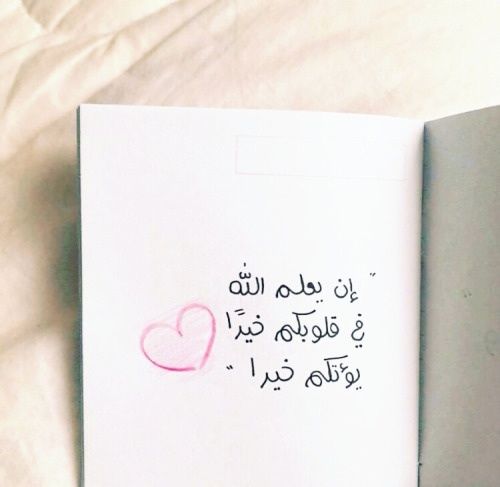 " إن يعلم الله
في قلوبكم خيرًا
يؤتكم خيرا "